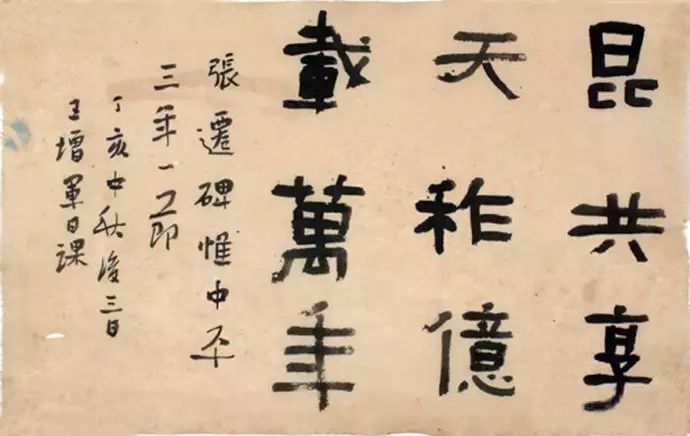 昆共享
天祚億
載萬年
張遷碑惟中平
三年一
丁亥中秋後三日
王增軍日課